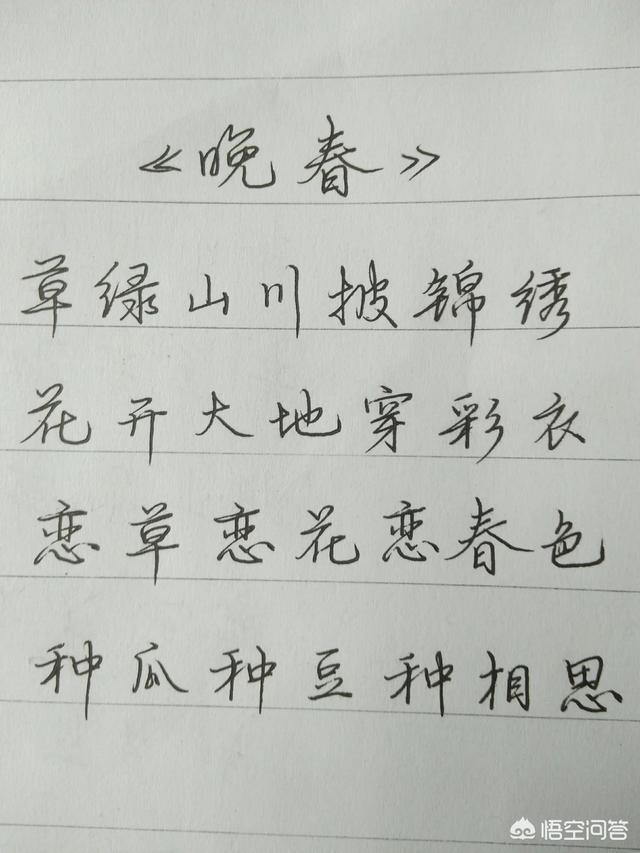 《晚春》
草绿山川披锦绣
花开大地穿彩衣
恋草恋花恋春色
种瓜种豆种相思
悟空问答